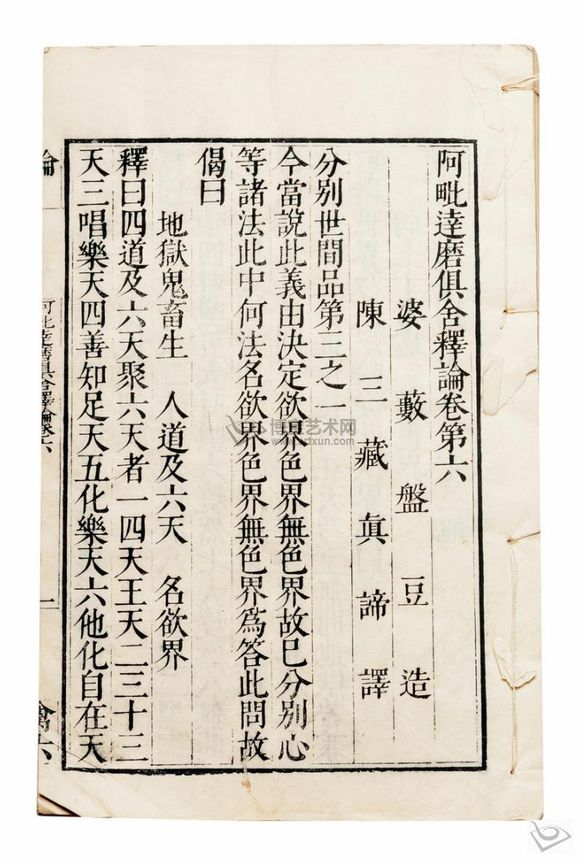 阿毗達磨俱舍釋論卷第六
婆藪盤豆造
陳三藏眞諦譯
分别世間品第三之一
今當說此義由決定欲界色界無色界故已分别心
等諸法此中何法名欲界色界無色界爲答此問故
偈曰
地獄鬼畜生　人道及六天　名欲界
釋曰四道及六天聚六天者一四天王天二三十三
天三唱樂天四善知足天五化樂天六他化自在天
論
阿毗達磨俱舍釋論卷六
一
博寶艺术网